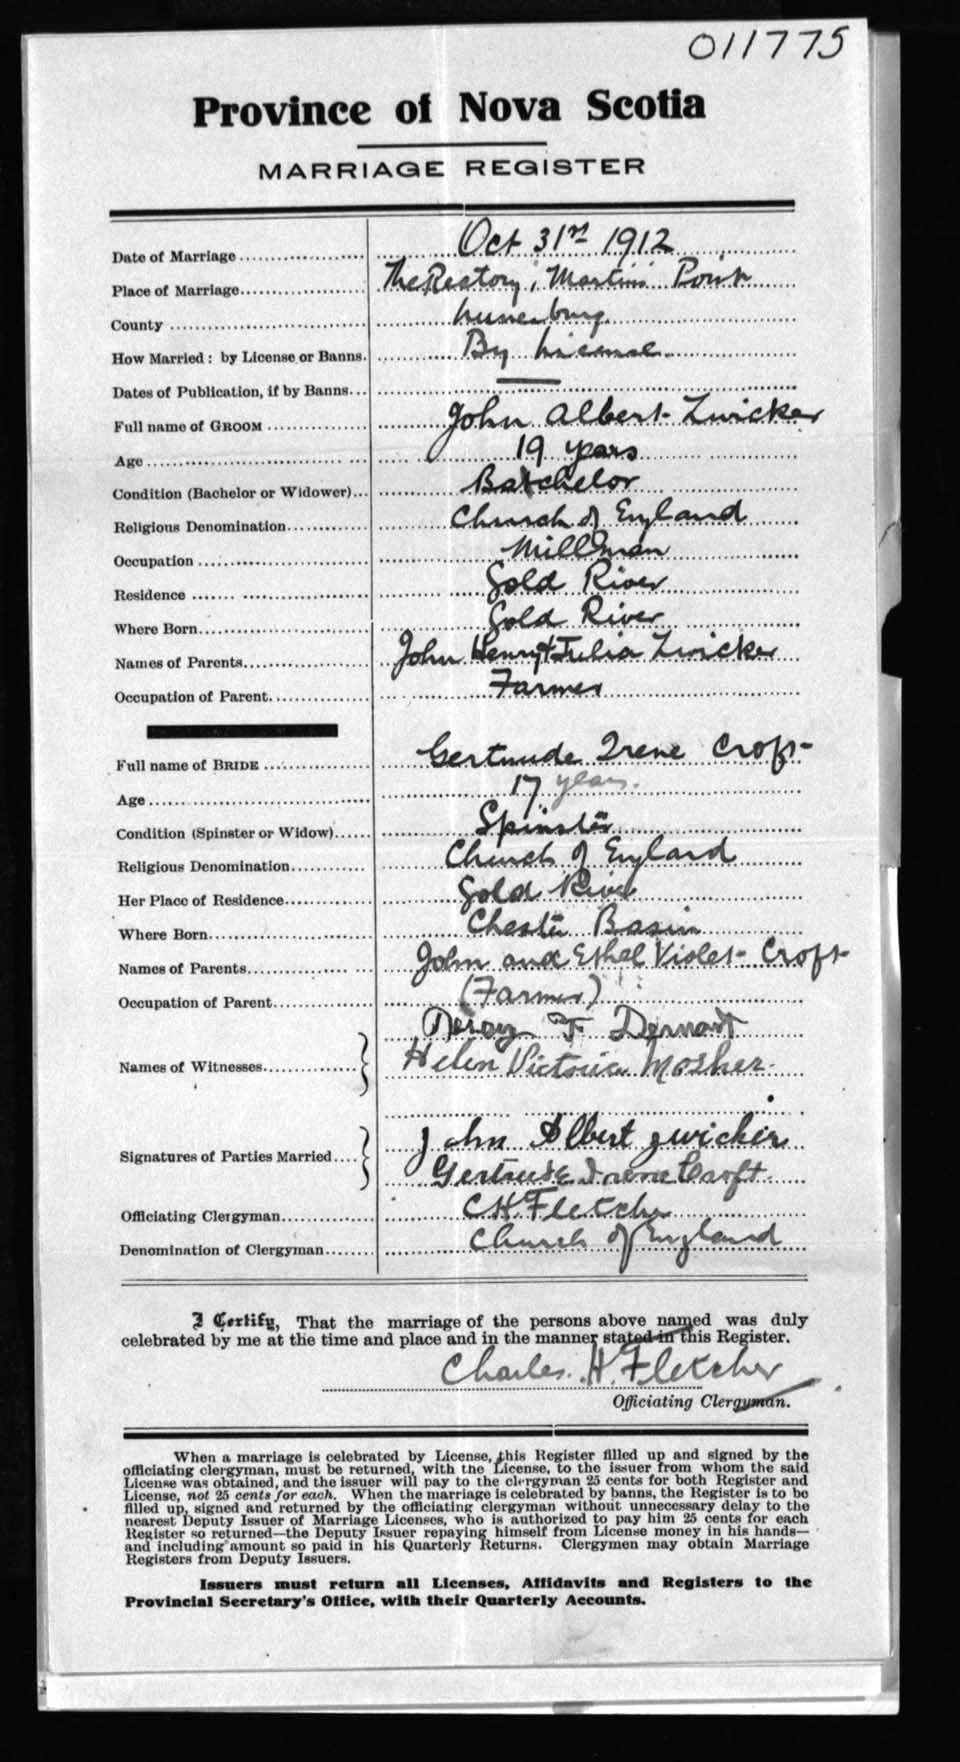 011775
Province of Nova Scotia
MARRIAGE REGISTER
Date of Marriage Oct 31st 1912
Place of Marriage The Rectory, Martins Point
County Lunenburg
How Married: by License or Banns. By License
Dates of Publication, if by Banns —
Full name of GROOM John Albert Zwicker
Age 19 years
Condition (Bachelor or Widower) Batchelor
Religious Denomination Church of England
Occupation Millman
Residence Gold River
Where Born Gold River
Names of Parents John Henry & Julia Zwicker
Occupation of Parent Farmer
Full name of BRIDE Gertrude Irene Croft
Age 17 years.
Condition (Spinster or Widow) Spinster
Religious Denomination Church of England
Her Place of Residence Gold River
Where Born Chester Basin
Names of Parents John and Ethel Violet Croft
Occupation of Parent (Farmer)
F
Names of Witnesses Helen Victoria Mosher
Signatures of Parties Married John Albert Zwicker
Gertrude Irene Croft
Officiating Clergyman C H Fletcher
Denomination of Clergyman Church of England
I Certify, That the marriage of the persons above named was duly
celebrated by me at the time and place and in the manner stated in this Register.
Charles. H. Fletcher
Officiating Clergyman.
When a marriage is celebrated by License, this Register filled up and signed by the
officiating clergyman, must be returned, with the License, to the issuer from whom the said
License was obtained, and the issuer will pay to the clergyman 25 cents for both Register and
License, not 25 cents for each. When the marriage is celebrated by banns, the Register is to be
filled up, signed and returned by the officiating clergyman without unnecessary delay to the
nearest Deputy Issuer of Marriage Licenses, who is authorized to pay him 25 cents for each
Register so returned—the Deputy Issuer repaying himself from License money in his hands—
and including amount so paid in his Quarterly Returns. Clergymen may obtain Marriage
Registers from Deputy Issuers.
Issuers must return all Licenses, Affidavits and Registers to the
Provincial Secretary's Office, with their Quarterly Accounts.